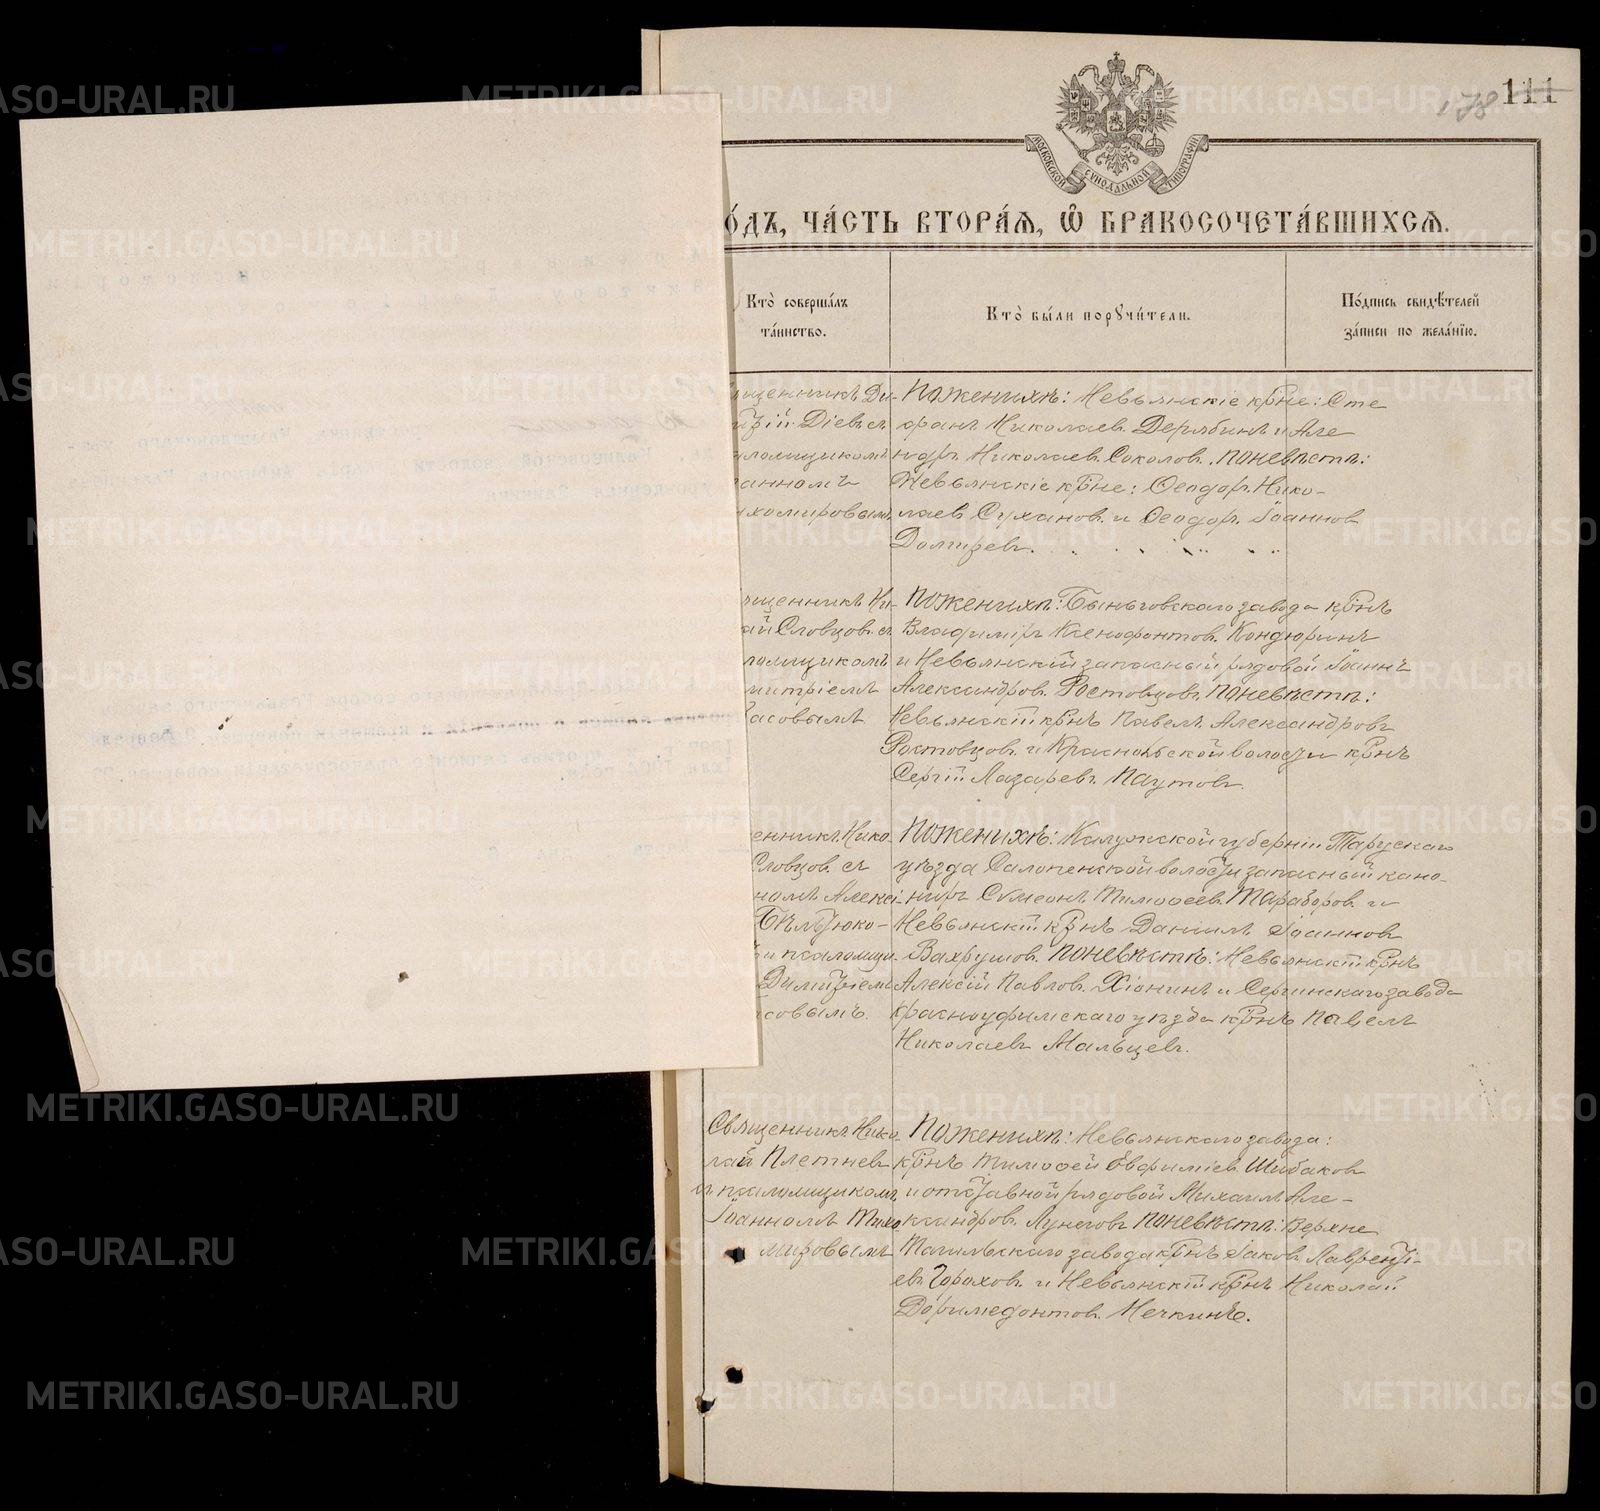 178 111
МОСКОВСКОЙ СѴНОДАЛЬНОЙ ТИПОГРАФІИ
О́ДЪ, ЧА́СТЬ ВТОРА́Ѧ, Ѽ БРАКОСОЧЕТА́ВШИХСѦ.
Кто̀ соверша́лъ
та́инство.
Кто̀ бы́ли порꙋчи́тели.
По́дпись свидѣ́телей
за́писи по жела́нїю.
щенникъ Ди-
Діевъ съ
ломщикомъ
анномъ
ихомировымъ.
По женихѣ: Невьянскіе кр̃не: Сте
фанъ Николаевъ Дерябинъ и Але
ндръ Николаевъ Соколовъ. По невѣстѣ:
Невьянскіе кр̃не: Ѳеодоръ Нико-
лаевъ Сухановъ и Ѳеодоръ Іоанновъ
щенникъ Ни-
ай Словцовъ съ
ломщикомъ
митріемъ
асовымъ
По женихѣ: Быньговскаго завода кр̃нъ
Владиміръ Ксенофонтовъ Кондюринъ
и Невьянскій запасный рядовой Іоаннъ
Александровъ Ростовцовъ. По невѣстѣ:
Невьянскій кр̃нъ Павелъ Александровъ
Ростовцовъ и волости кр̃нъ
Сергій Лазаревъ Паутовъ.
енникъ Нико-
Словцовъ съ
номъ Алексі-
Бѣлтюко-
и псаломщи-
Димитріемъ
совымъ.
По женихѣ: Калужской губерніи Тарускаго
уѣзда Салопенской волости запасный кано-
ниръ Сѵмеонъ Тимоѳеевъ Тараборовъ и
Невьянскій кр̃нъ Даниилъ Іоанновъ
Вахрушовъ. По невѣстѣ: Невьянскій кр̃нъ
Алексій Павловъ Хіонинъ и Сергинскаго завода
Красноуфимскаго уѣзда кр̃нъ Павелъ
Николаевъ Мальцевъ.
Священникъ Нико-
лай Плетневъ
съ псаломщикомъ
Іоанномъ Тихо
мировымъ
По женихѣ: Невьянскаго завода:
кр̃нъ Тимоѳей Евфиміевъ Шибаковъ
и отставной рядовой Михаилъ Але-
ксандровъ Лунеговъ. По невѣстѣ: Верхне
Тагильскаго завода кр̃нъ Іаковъ Лавренті-
евъ Гороховъ и Невьянскій кр̃нъ Николай
Доримедонтовъ Мечкинъ.
METRIKI.GASO-URAL.RU